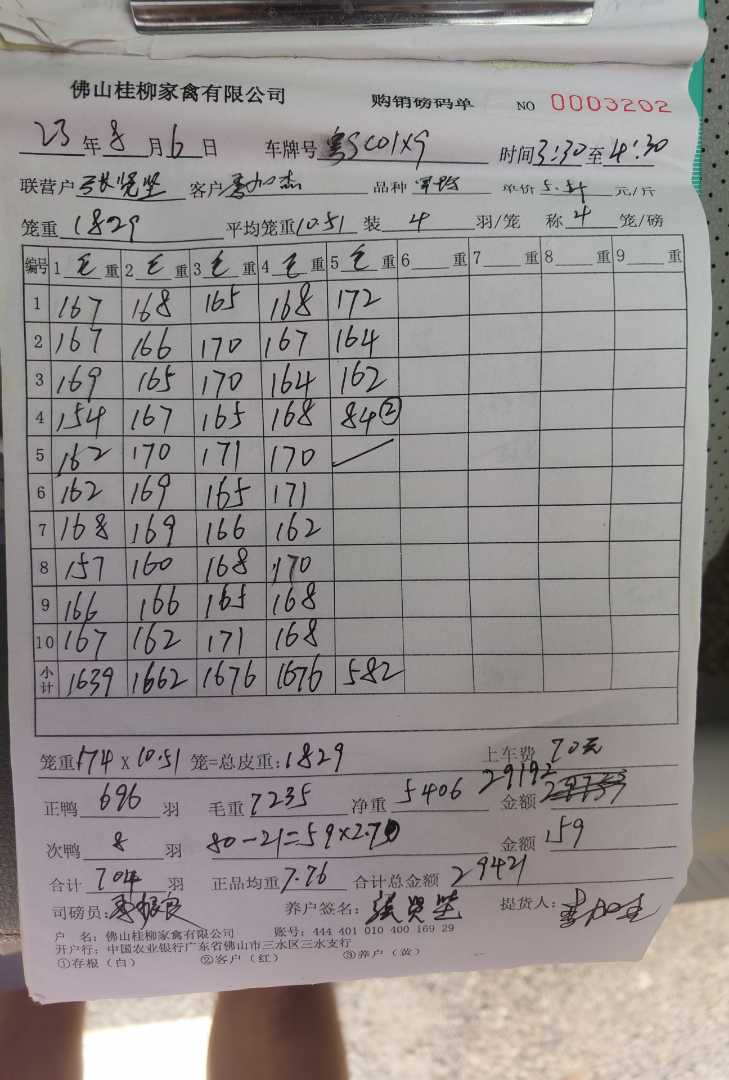 佛山桂柳家禽有限公司 购销磅码单 NO 0003202
23年8月6日 车牌号粤SC01X9 时间3:30至4:30
联营户张贤坚 客户 品种 单价5.4 元/斤
笼重1829 平均笼重10.51 装4羽/笼 称4笼/磅
编号 1毛重 2毛重 3毛重 4毛重 5毛重 6重 7重 8重 9重
1 167 168 165 168 172
2 167 166 170 167 164
3 169 165 170 164 162
4 154 167 165 168 84②
5 162 170 171 170
6 162 169 165 171
7 168 169 166 162
8 157 160 168 170
9 166 166 165 168
10 167 162 171 168
小计 1639 1662 1676 1676 582
笼重174X10.51笼=总皮重:1829 上车费70元
正鸭696羽 毛重7235 净重5406 金额29192
次鸭8羽 80-21=59×2.70 金额159
合计704羽 正品均重7.76 合计总金额29421
司磅员: 养户签名:张贤坚 提货人:
户 名:佛山桂柳家禽有限公司 账号:444 401 010 400 169 29
开户行:中国农业银行广东省佛山市三水区三水支行
①存根(白) ②客户(红) ③养户(黄)